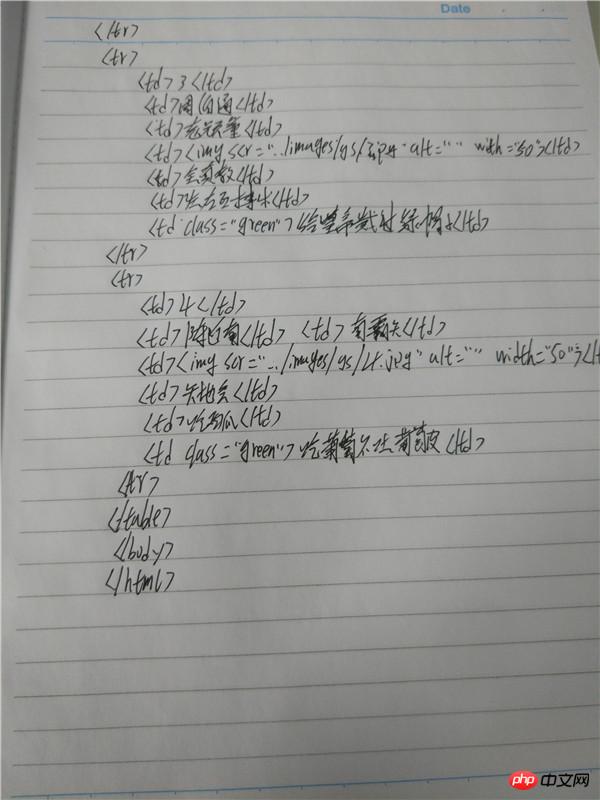 Date
</tr>
<tr>
<td>3</td>
<td>周伯通</td>
<td>老顽童</td>
<td><img scr="../images/gs/3.jpg" alt="" with="50"></td>
<td>全真教</td>
<td>左右互搏术</td>
<td class="green">给皇帝戴时绿帽子</td>
</tr>
<tr>
<td>4</td>
<td>陈百南</td> <td>南霸天</td>
<td><img scr="../images/gs/4.jpg" alt="" width="50"></t
<td>天地会</td>
<td>吃西瓜</td>
<td class="green">吃葡萄不吐葡萄皮</td>
</tr>
</table>
</body>
</html>
php 中文网